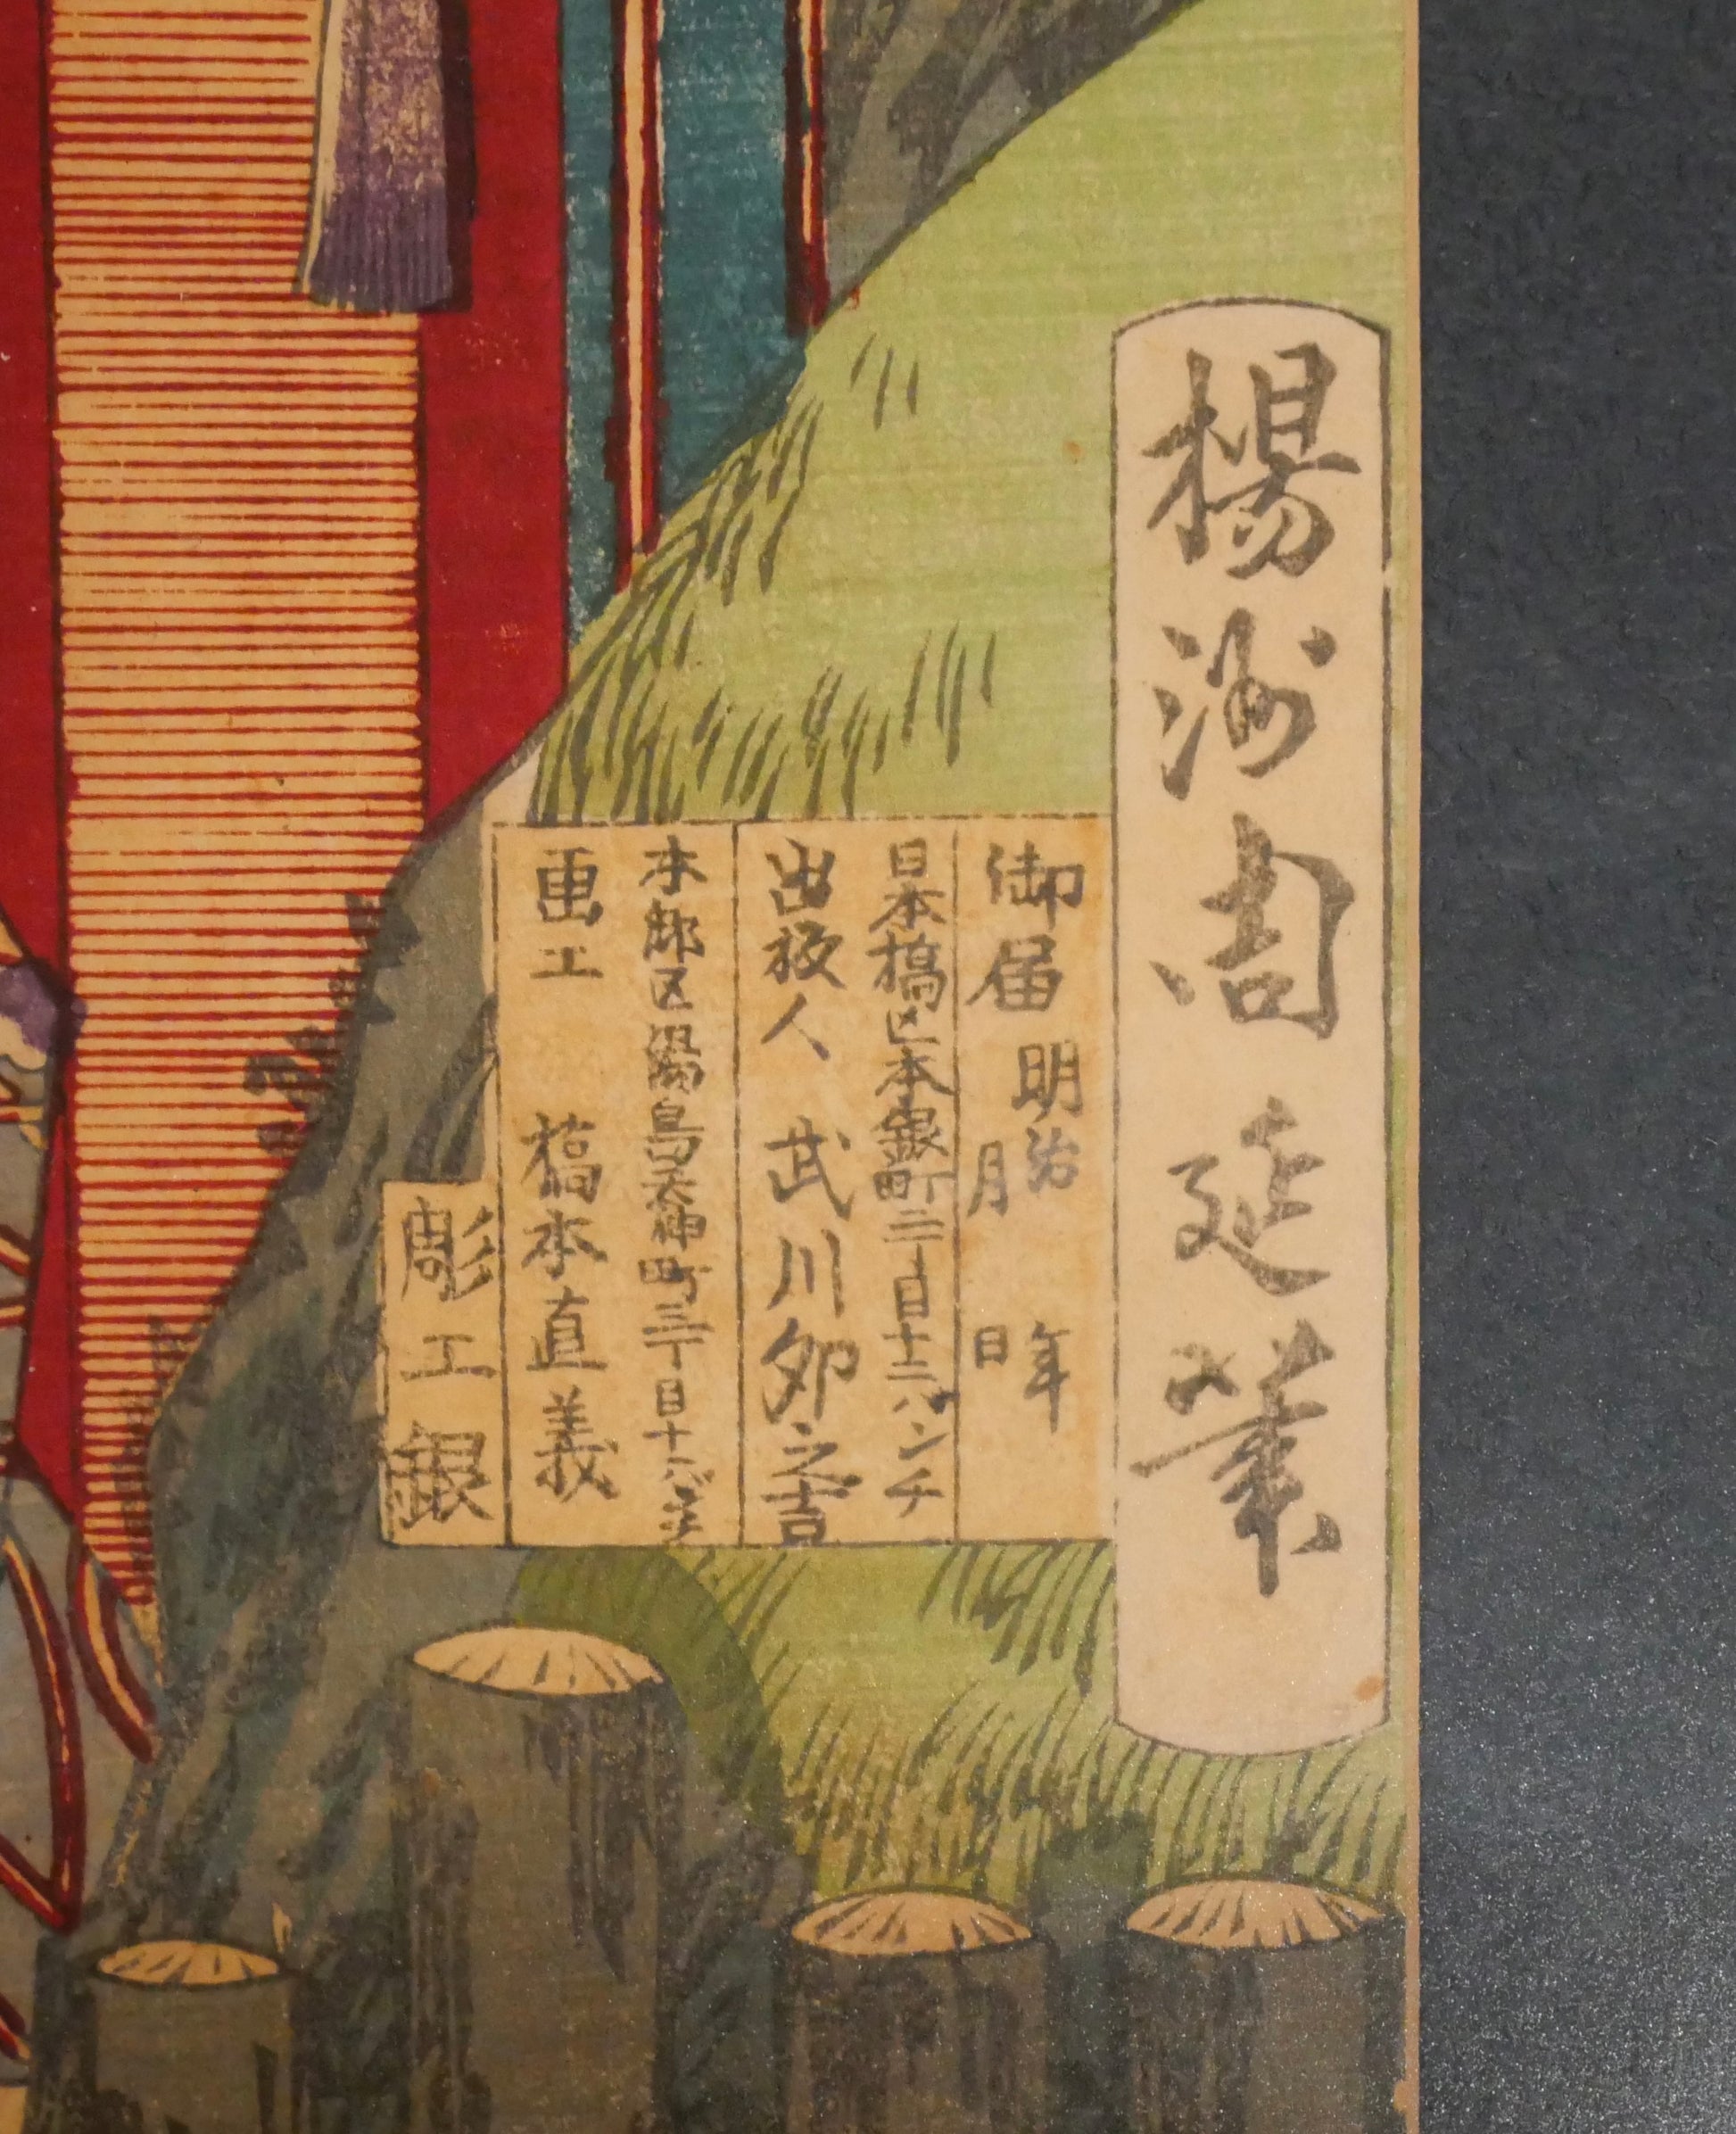 楊洲周延筆
御届明治 年
月 日
日本橋区本銀町二丁目十二バンチ
出板人 武川卯之吉
本郷区湯島天神町三丁目十六バンチ
画工 橋本直義
彫工銀